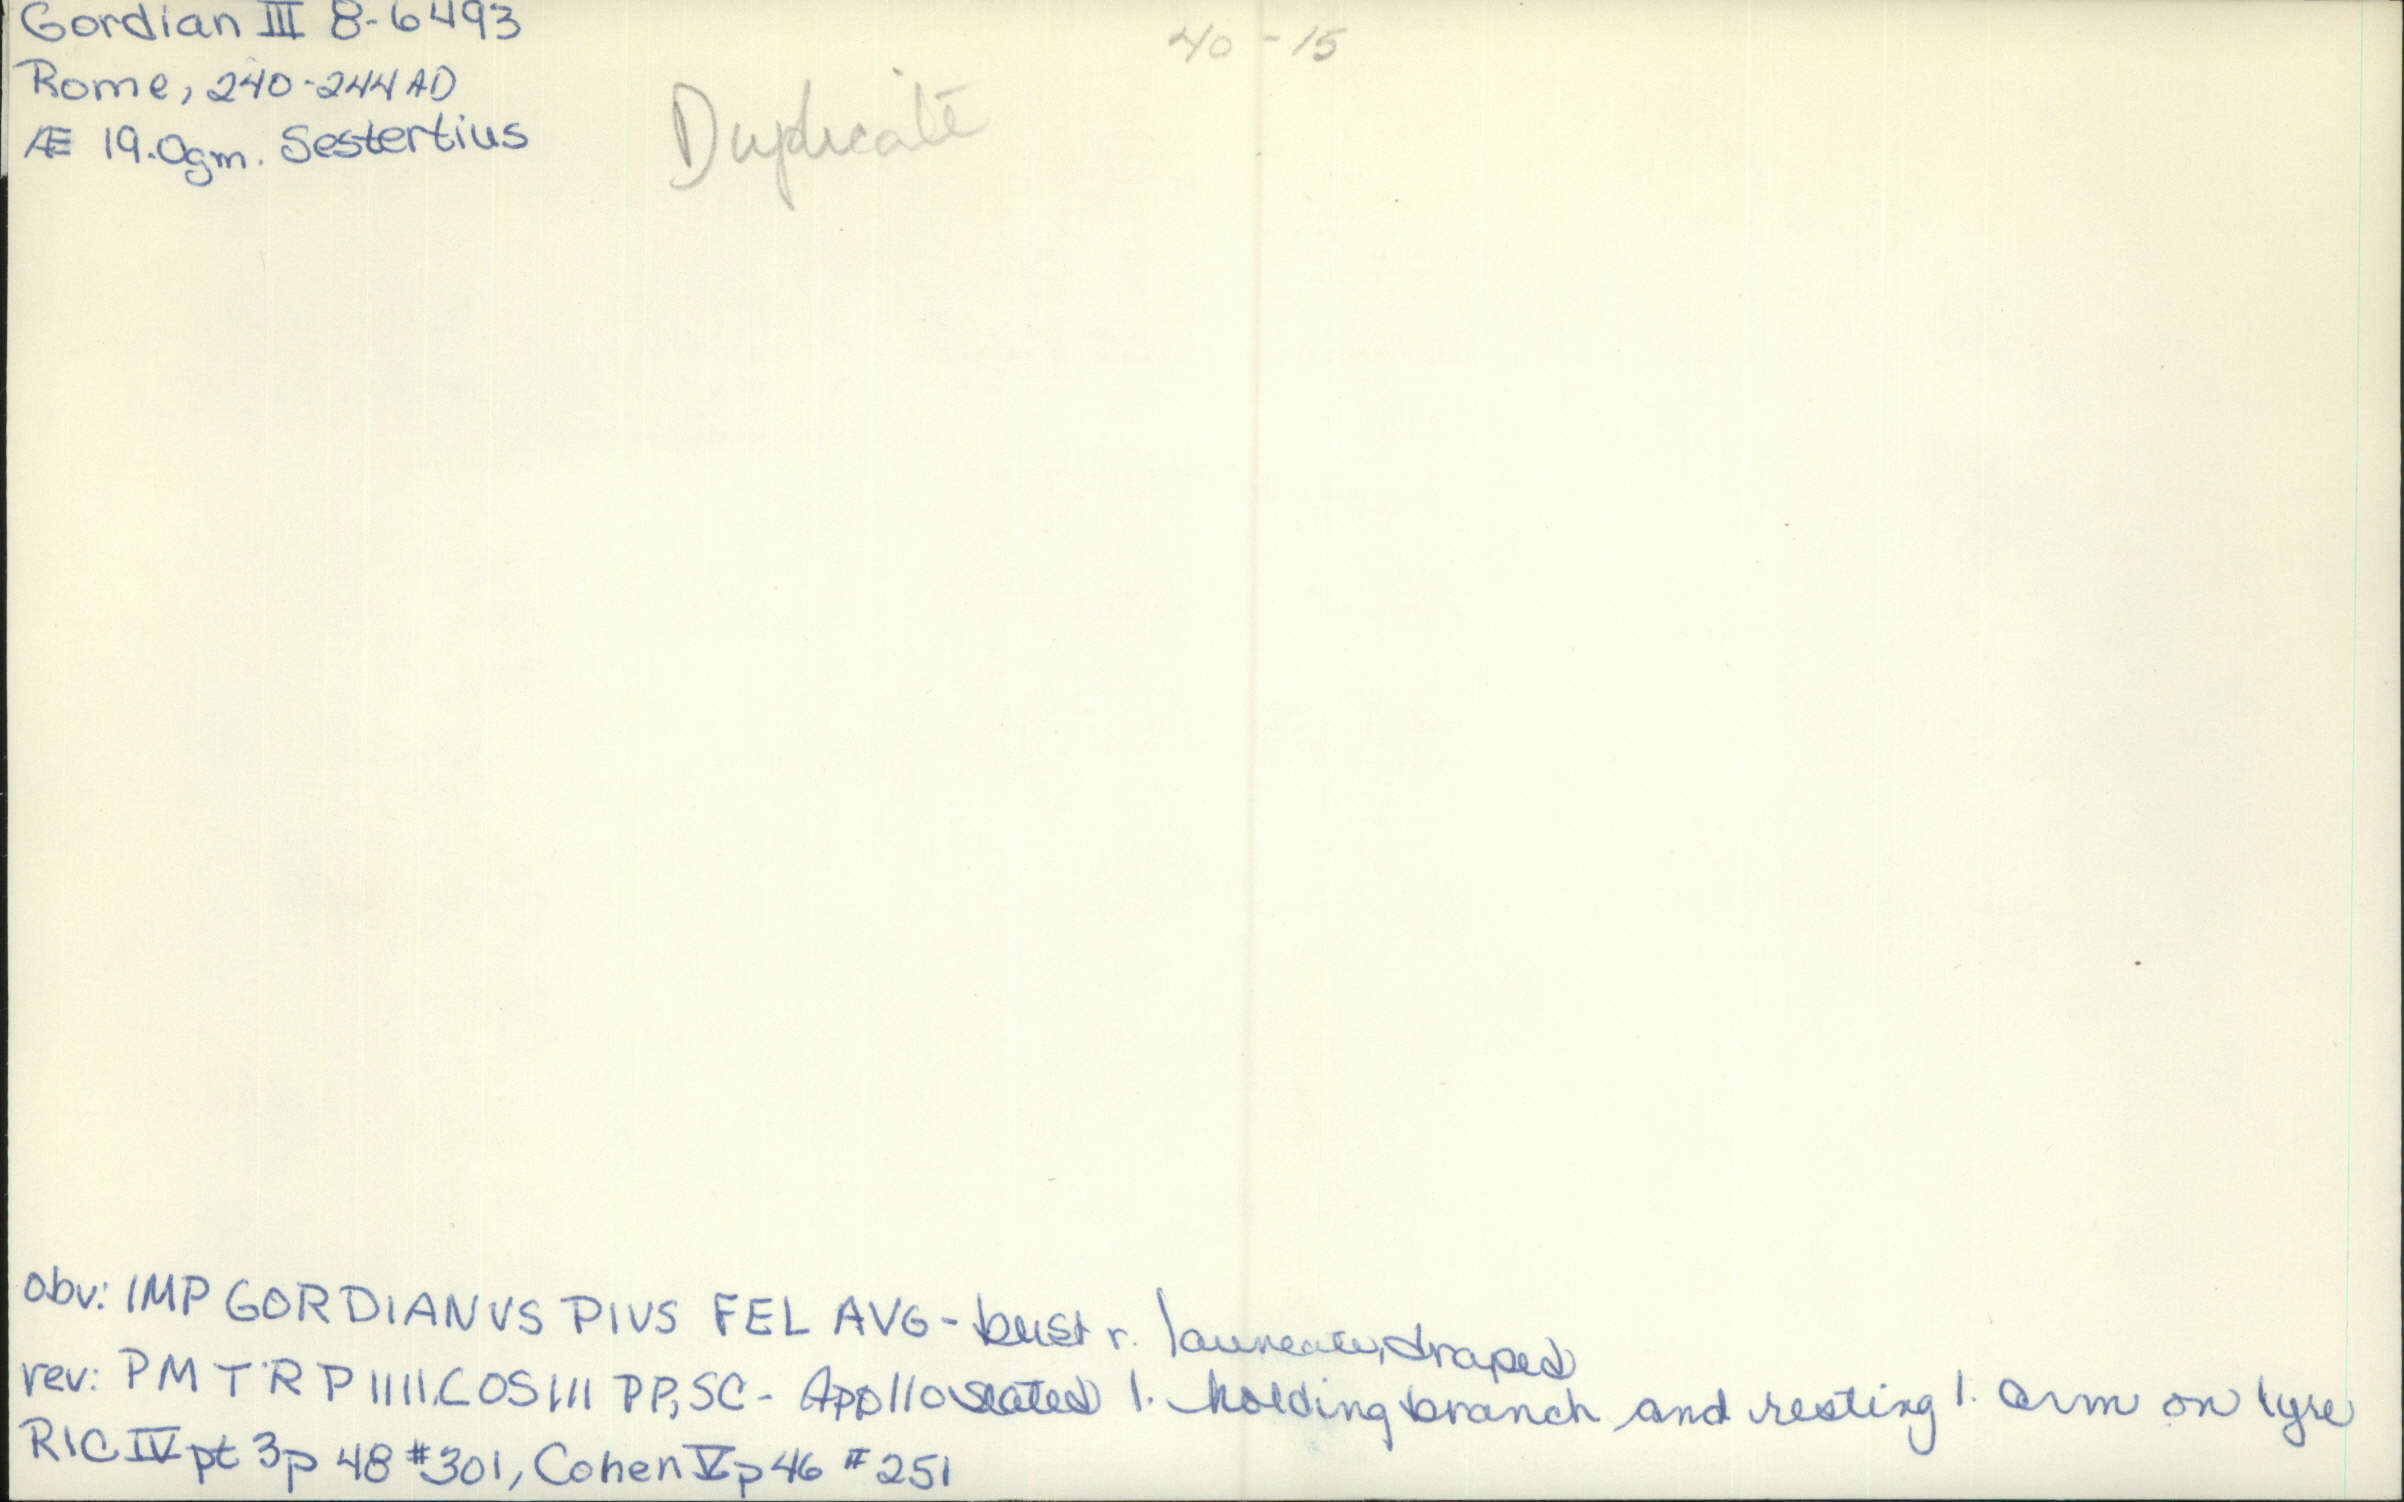 Gordian III 8-6493
40-15
Rome, 240-244 AD
Duplicate
Æ 19.0gm. Sestertius
obv: IMP GORDIANVS PIVS FEL AVG - bust r. laureate, draped
rev: PM TRP IIII, COS III PP, SC - Apollo seated l. holding branch and resting l. arm on lyre
RIC IV pt 3 p 48 #301, Cohen V p 46 #251